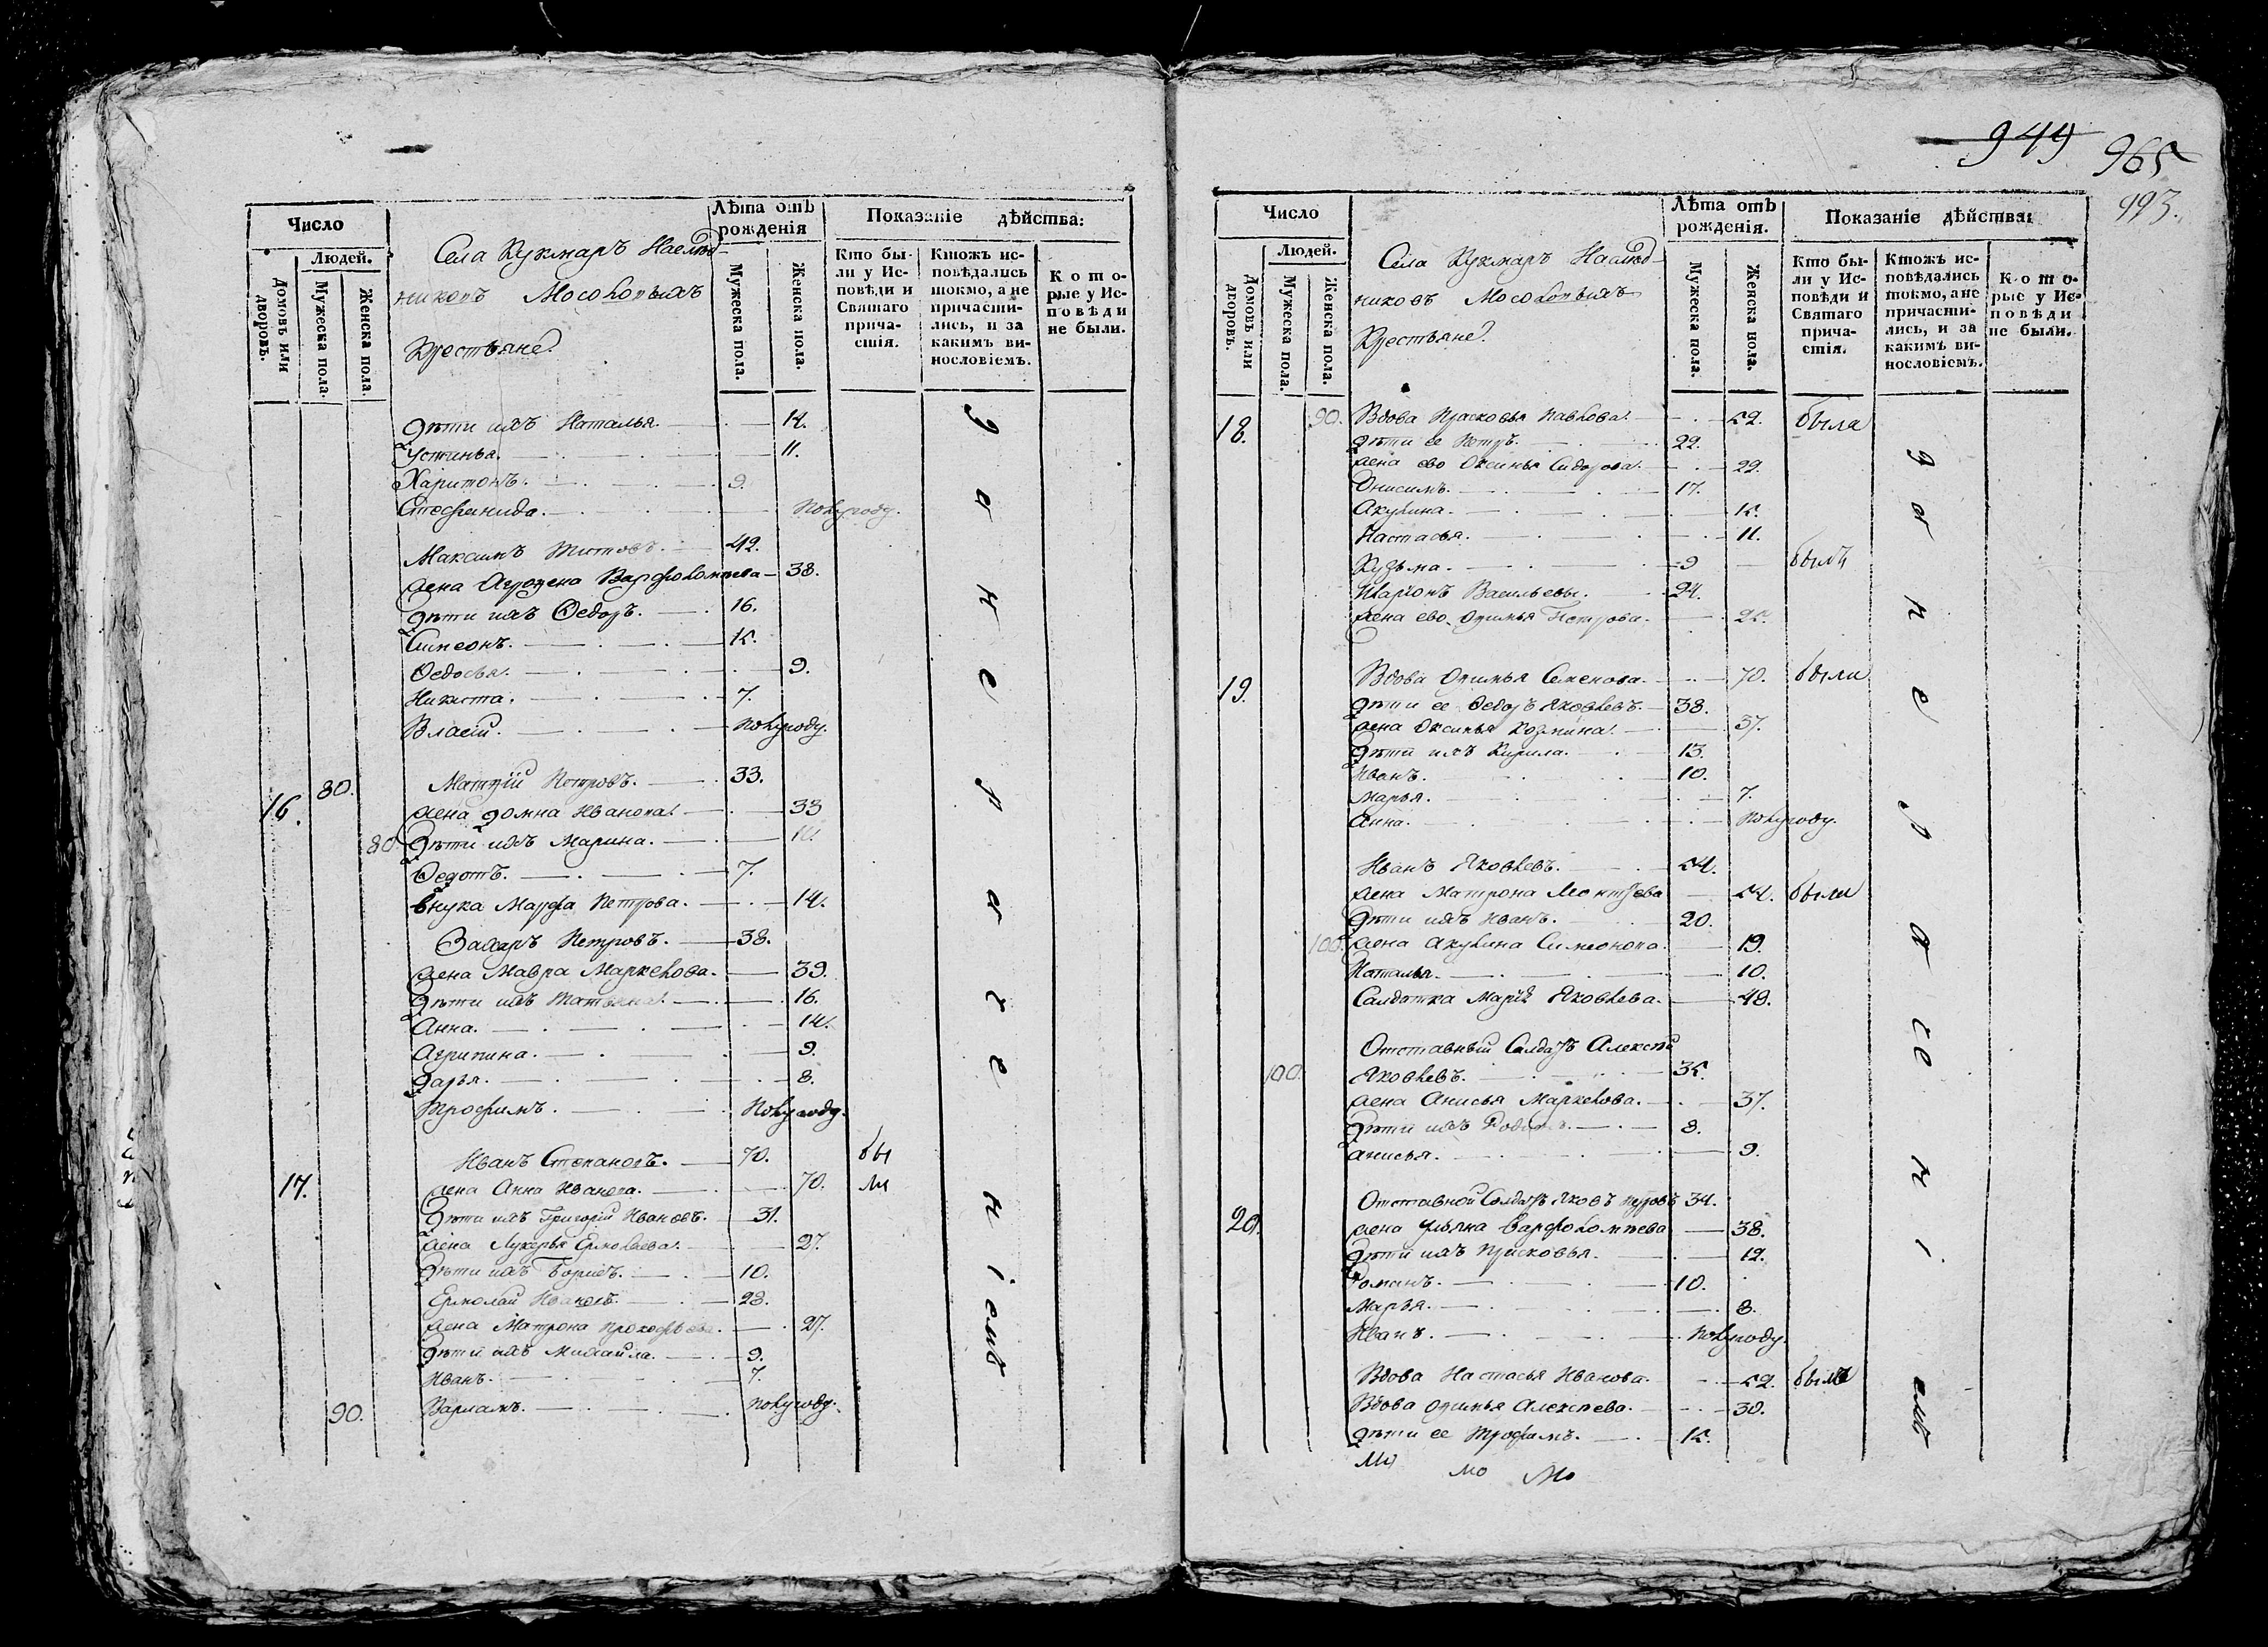 Число
Людей.
Домовъ или дворовъ.
Мужеска пола.
Женска пола.
Села Кукмаръ Наслѣд-
никовъ Мосоловыхъ
Крестьяне.
Лѣта отъ рожденія
Мужеска пола.
Женска пола.
Показаніе дѣйства:
Кто бы-
ли у Ис-
повѣди и
Святаго
прича-
стія.
Ктожъ ис-
повѣдались
токмо, а не
причасти-
лись, и за
какимъ ви-
нословіемъ.
Кото-
рые у Ис-
повѣди
не были.
дѣти ихъ Наталья. 14.
Устинья. 11.
Харитонъ. 9.
Стефанида. полугоду.
Максимъ Титовъ. 42.
жена Агрофена Варфоломѣева 38.
дѣти ихъ Федоръ. 16.
Симеонъ. 15.
Федосья. 9.
Никита. 7.
Власій. полугоду.
16. 80. Матвѣй Петровъ. 33.
жена домна Иванова. 33
80 дѣти ихъ Марина.
Федотъ. 7.
внука Марфа Петрова. 14.
Захаръ Петровъ. 38.
жена Мавра Маркелова. 39.
дѣти ихъ Татьяна. 16.
Анна. 14.
Агрипина. 9.
дарья. 8.
Трофимъ. полугоду.
Иванъ Степановъ. 70. бы
17. жена Анна Иванова. 70. ли
дѣти ихъ Григорій Ивановъ. 31.
жена Лукерья Ермолаева. 27.
дѣти ихъ Борисъ. 10.
Ермолай Ивановъ. 28.
жена Матрона Прокофьева. 27.
дѣти ихъ Михайла. 9.
Иванъ. 7.
90. Варламъ. полугоду.
за нераченіемъ
949
965
993.
Число
Людей.
Домовъ или дворовъ.
Мужеска пола.
Женска пола.
Села Кукмаръ Наслѣд-
никовъ Мосоловыхъ
Крестьяне.
Лѣта отъ рожденія.
Мужеска пола.
Женска пола.
Показаніе дѣйства:
Кто бы-
ли у Ис-
повѣди и
Святаго
прича-
стія.
Ктожъ ис-
повѣдались
токмо, а не
причасти-
лись, и за
какимъ ви-
нословіемъ.
Кото-
рые у Ис-
повѣди
не были.
18. 90. Вдова Прасковья Павлова. 52. была
дѣти ее Петръ. 22.
жена ево Оксинья Сидорова. 22.
Онисимъ. 17.
Акулина. 15.
Настасья. 11.
Кузьма. 9 былъ
Иларіонъ Васильевъ. 24.
жена ево Орина Петрова. 25.
19. Вдова Орина Семенова. 70. были
дѣти ее Федоръ Яковлевъ. 38.
жена Оксинья Козмина. 37.
дѣти ихъ Кирила. 13.
Иванъ. 10.
Марья. 7.
Анна. полугоду.
Иванъ Яковлевъ. 54.
жена Матрона Леонтьева 54. были
дѣти ихъ Иванъ. 20.
100. жена Акулина Симеонова. 19.
Наталья. 10.
Салдатка Марья Яковлева. 48.
Отставный Салдатъ Алексѣй
100. Яковлевъ. 35.
жена Анисья Маркелова. 37.
дѣти ихъ 8.
Анисья. 9.
Отставной Салдатъ Яковъ Петровъ 34.
20. жена Ульяна Варфоломѣева 38.
дѣти ихъ Прасковья. 12.
Романъ. 10.
Марья. 8.
Иванъ. полугоду.
Вдова Настасья Иванова. 52. была
Вдова Орина Алексѣева. 30.
дѣти ее Трофимъ. 15.
за нераченіемъ